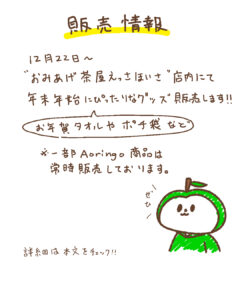 販売情報
12月22日～
"おみあげ茶屋えっさほいさ"店内にて
年末年始にぴったりなグッズ販売します!!
お年賀タオルやポチ袋など
※一部Aoringo商品は
常時販売しております。
ぜひ
詳細は本文をチェック!!